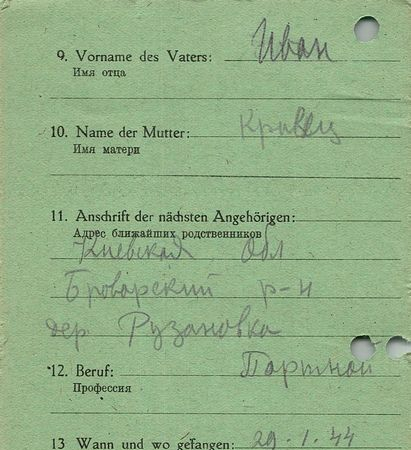 9. Vorname des Vaters: Иван
Имя отца
10. Name der Mutter: Кравец
Имя матери
11. Anschrift der nächsten Angehörigen:
Адрес ближайших родственников
Киевская Обл
Броварский р-н
дер. Рузановка
12. Beruf: Портной
Профессия
13 Wann und wo gefangen: 29.1.44